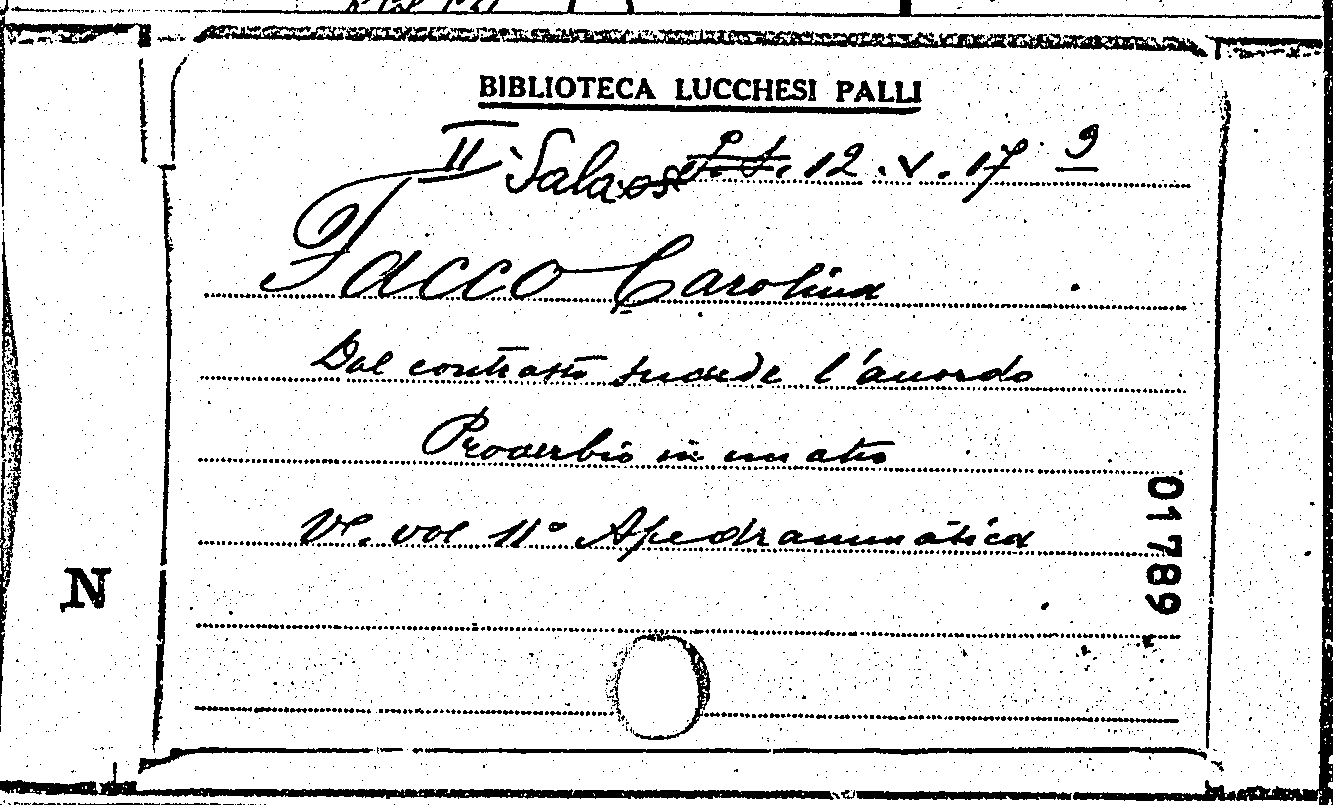 BIBLIOTECA LUCCHESI PALLI
II Sala 12.V.17. 9
Facco Carolina
Dal contrasto succede l'accordo
Proverbio in un atto
Ve. vol 11° Ape drammatica
01789
N